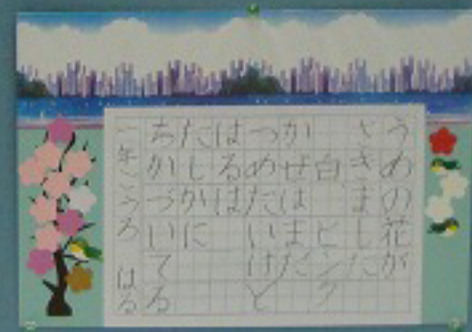 うめの花が
さきました
白、ピンク
かぜはまだ
つめたいけど
はるは
たしかに
ちかづいてる
一年こうろ はる